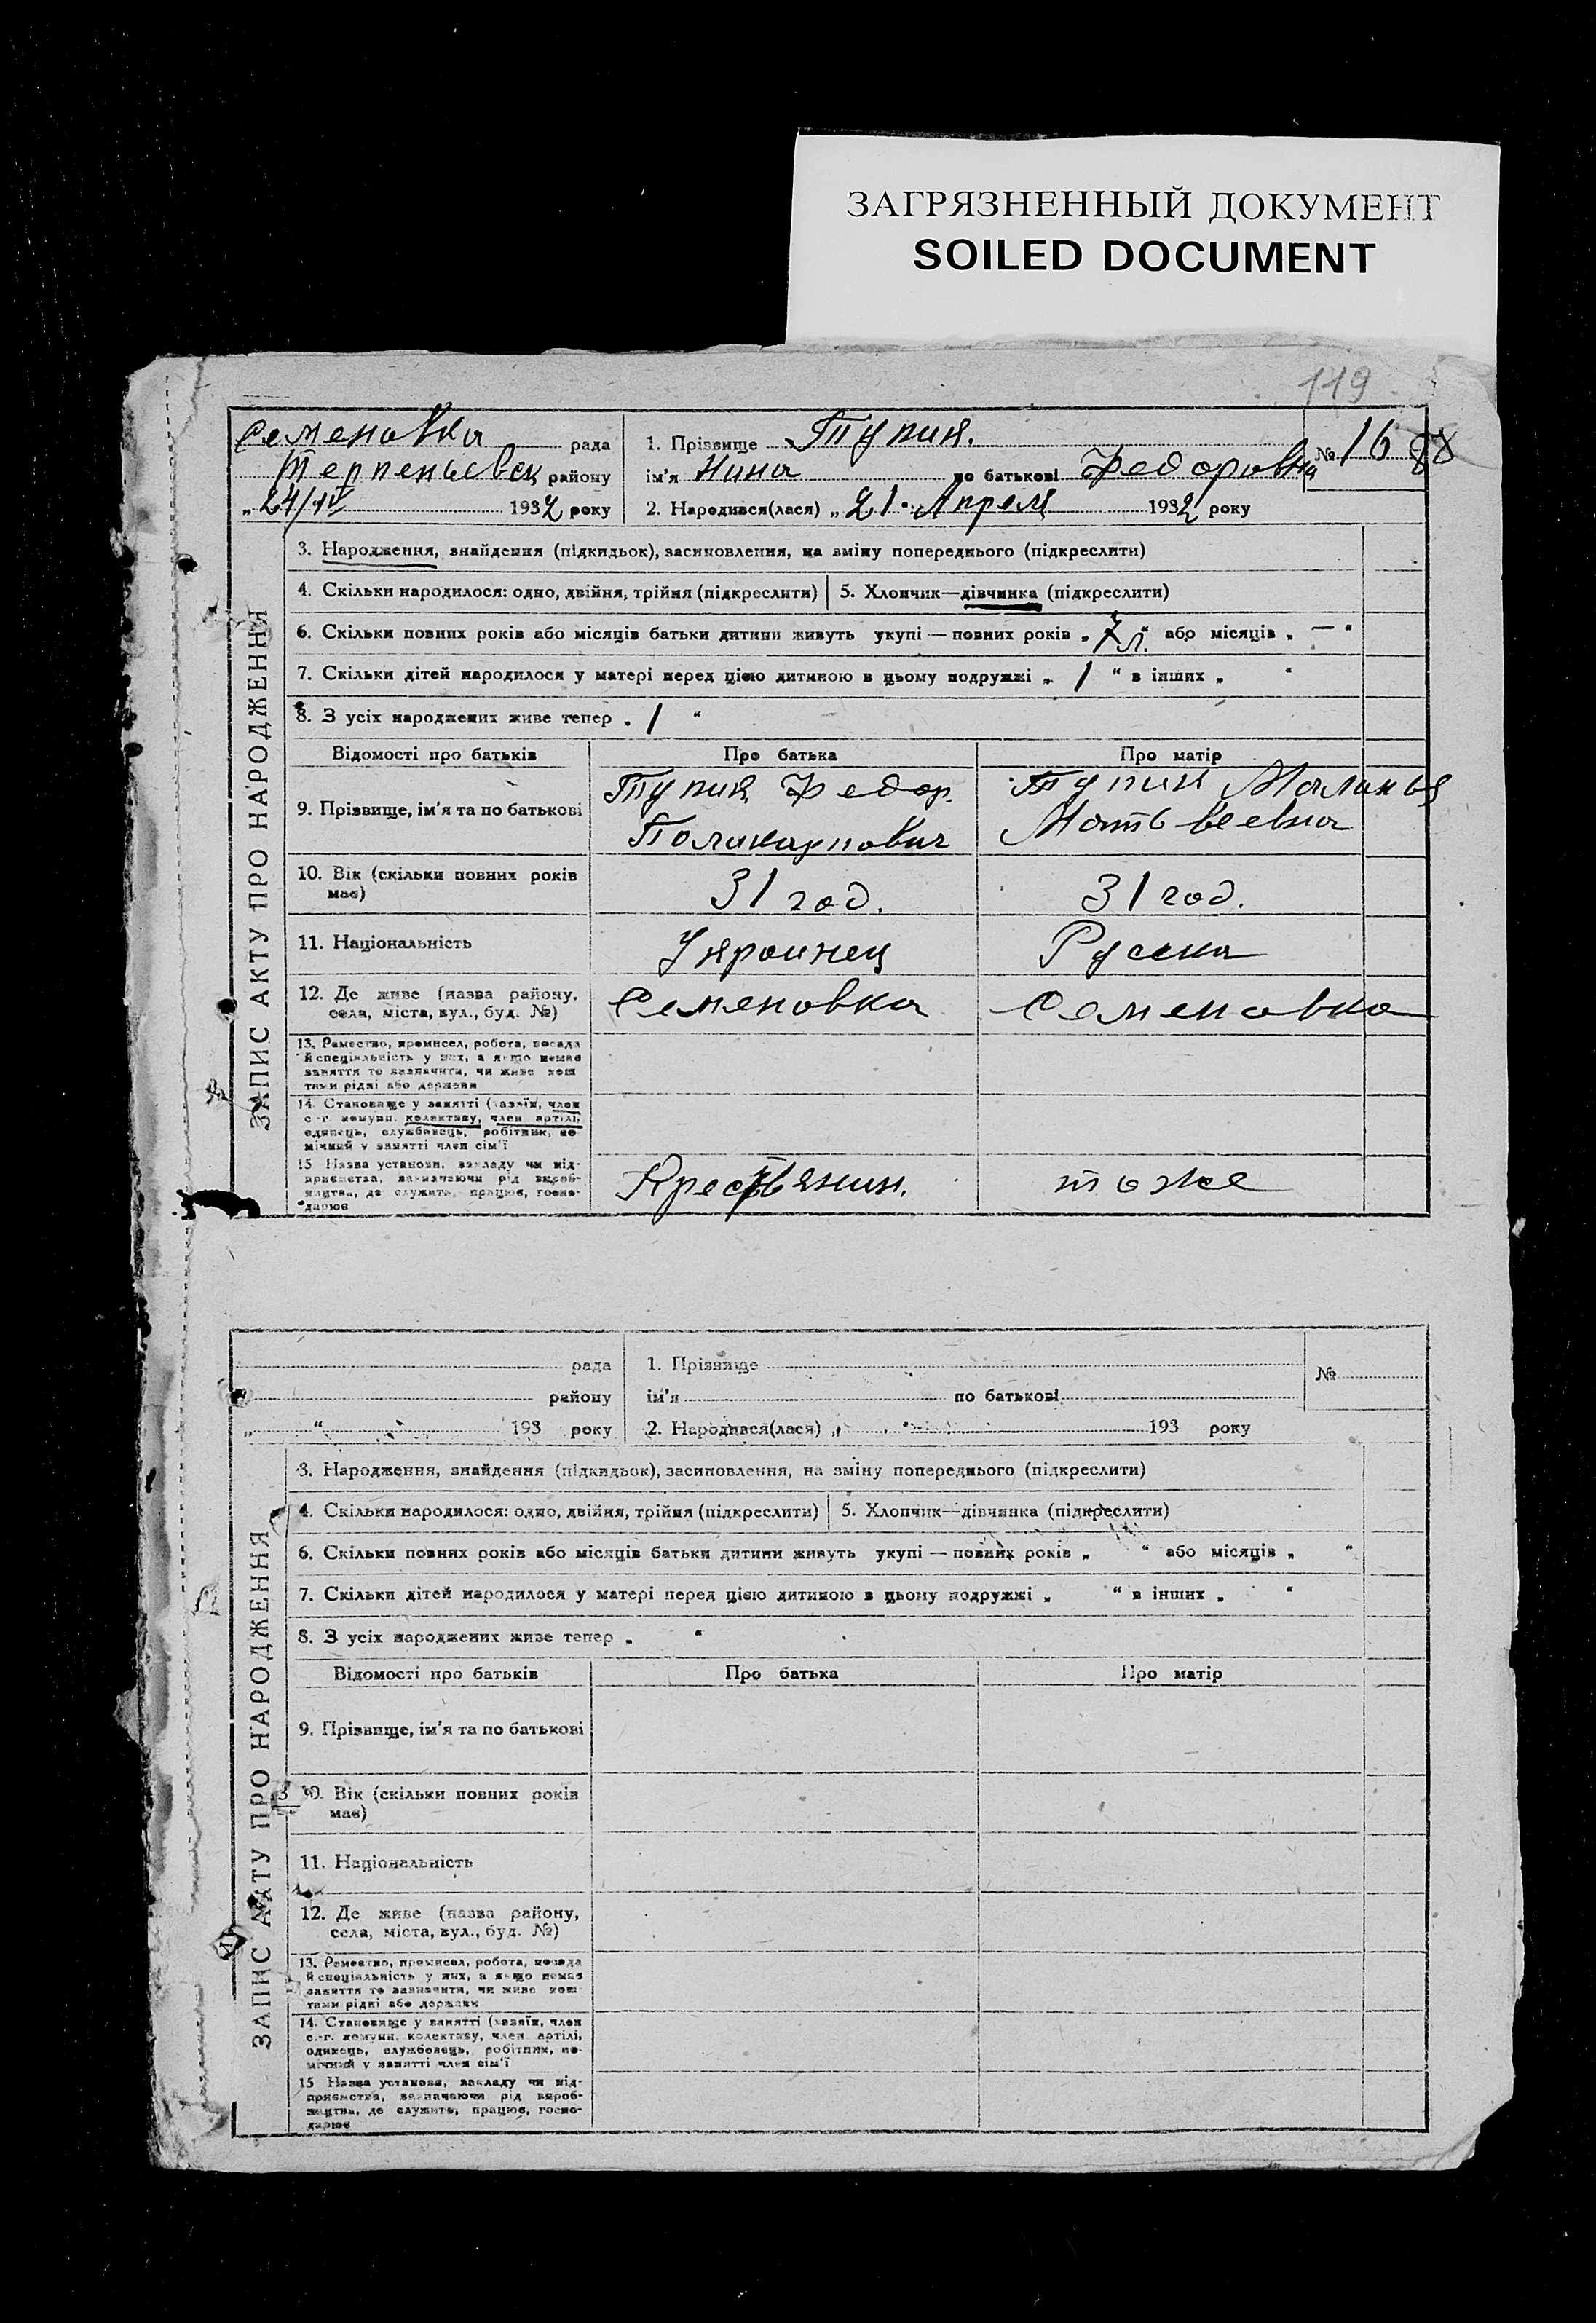 ЗАГРЯЗНЕННЫЙ ДОКУМЕНТ
SOILED DOCUMENT
119
Семеновка рада
Терпеньевск району
„24/IV 1932 року
1. Прізвище Тупия.
ім'я Нина по батькові Федоровна
2. Народився(лася) „21" Апреля 1932 року
№ 16 88
ЗАПИС АКТУ ПРО НАРОДЖЕННЯ
3. Народження, знайдення (підкидьок), засиновлення, на зміну попереднього (підкреслити)
4. Скільки народилося: одно, двійня, трійня (підкреслити) 5. Хлопчик—дівчинка (підкреслити)
6. Скільки повних років або місяців батьки дитини живуть укупі — повних років „7 л." або місяців „—"
7. Скільки дітей народилося у матері перед цією дитиною в цьому подружжі „ 1 " в інших „ "
8. З усіх народжених живе тепер „ 1 "
Відомості про батьків Про батька Про матір
9. Прізвище, ім'я та по батькові
Тупия Федор.
Поликарпович
Тупия Маланья
Матьвеевна
10. Вік (скільки повних років
має)
31 год. 31 год.
11. Національність Украинец Русска
12. Де живе (назва району,
села, міста, вул., буд. №)
Семеновка Семеновка
13. Ремество, промисел, робота, посада
й спеціяльність у них, а якщо немає
заняття то зазначити, чи живе кош
тами рідні або держави
14. Становище у занятті (хазяїн, член
с.-г. комуни, колективу, член артілі,
одинець, службовець, робітник, по-
мічний у занятті член сім'ї
15 Назва установи, закладу чи під-
приємства, зазначаючи рід вироб-
ництва, де служить, працює, госпо-
дарює
Крестьянин. тоже
рада
району
„ " 193 року
1. Прізвище
ім'я по батькові
2. Народився(лася) „ " 193 року
№
ЗАПИС АКТУ ПРО НАРОДЖЕННЯ
3. Народження, знайдення (підкидьок), засиновлення, на зміну попереднього (підкреслити)
4. Скільки народилося: одно, двійня, трійня (підкреслити) 5. Хлопчик—дівчинка (підкреслити)
6. Скільки повних років або місяців батьки дитини живуть укупі — повних років „ " або місяців „ "
7. Скільки дітей народилося у матері перед цією дитиною в цьому подружжі „ " в інших „ "
8. З усіх народжених живе тепер „ "
Відомості про батьків Про батька Про матір
9. Прізвище, ім'я та по батькові
10. Вік (скільки повних років
має)
11. Національність
12. Де живе (назва району,
села, міста, вул., буд. №)
13. Ремество, промисел, робота, посада
й спеціяльність у них, а якщо немає
заняття то зазначити, чи живе кош-
тами рідні або держави
14. Становище у занятті (хазяїн, член
с.-г. комуни, колективу, член артілі,
одинець, службовець, робітник, по-
мічний у занятті член сім'ї
15 Назва установи, закладу чи під-
приємства, зазначаючи рід вироб-
ництва, де служить, працює, госпо-
дарює